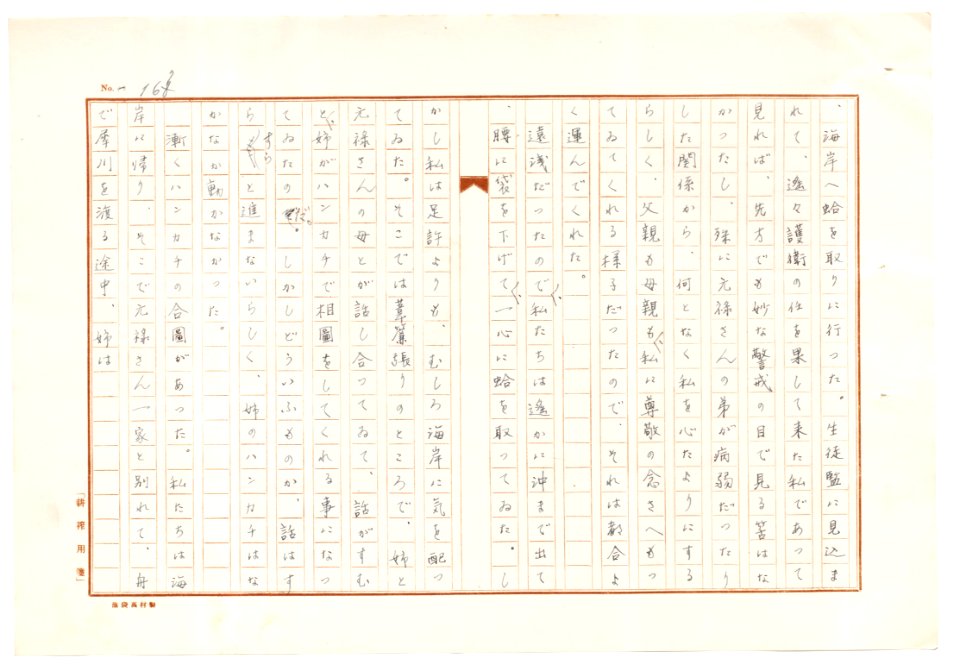 No. 168
、海岸へ蛤を取りに行った。生徒監に見込ま
れて、遙々護衛の任を果して来た私であって
見れば、先方でも妙な警戒の目で見る筈はな
かったし、殊に元禄さんの弟が病弱だったり
した関係から、何となく私を心だよりにする
らしく、父親も母親も、私に尊敬の念さへもっ
てゐてくれる様子だったので、それは都合よ
く運んでくれた。
遠浅だったので、私たちは遙かに沖まで出て
、腰に袋を下げて、一心に蛤を取ってゐた。し
かし私は足許よりも、むしろ海岸に気を配っ
てゐた。そこでは葦簾張りのところで、姉と
元禄さんの母とが話し合ってゐて、話がすむ
と、姉がハンカチで相圖をしてくれる事になっ
てゐたのだ。しかしどういふものか、話はす
らすらと進まないらしく、姉のハンカチはな
かなか動かなかった。
漸くハンカチの合圖があった。私たちは海
岸に帰り、そこで元禄さん一家と別れて、舟
で犀川を渡る途中、姉は